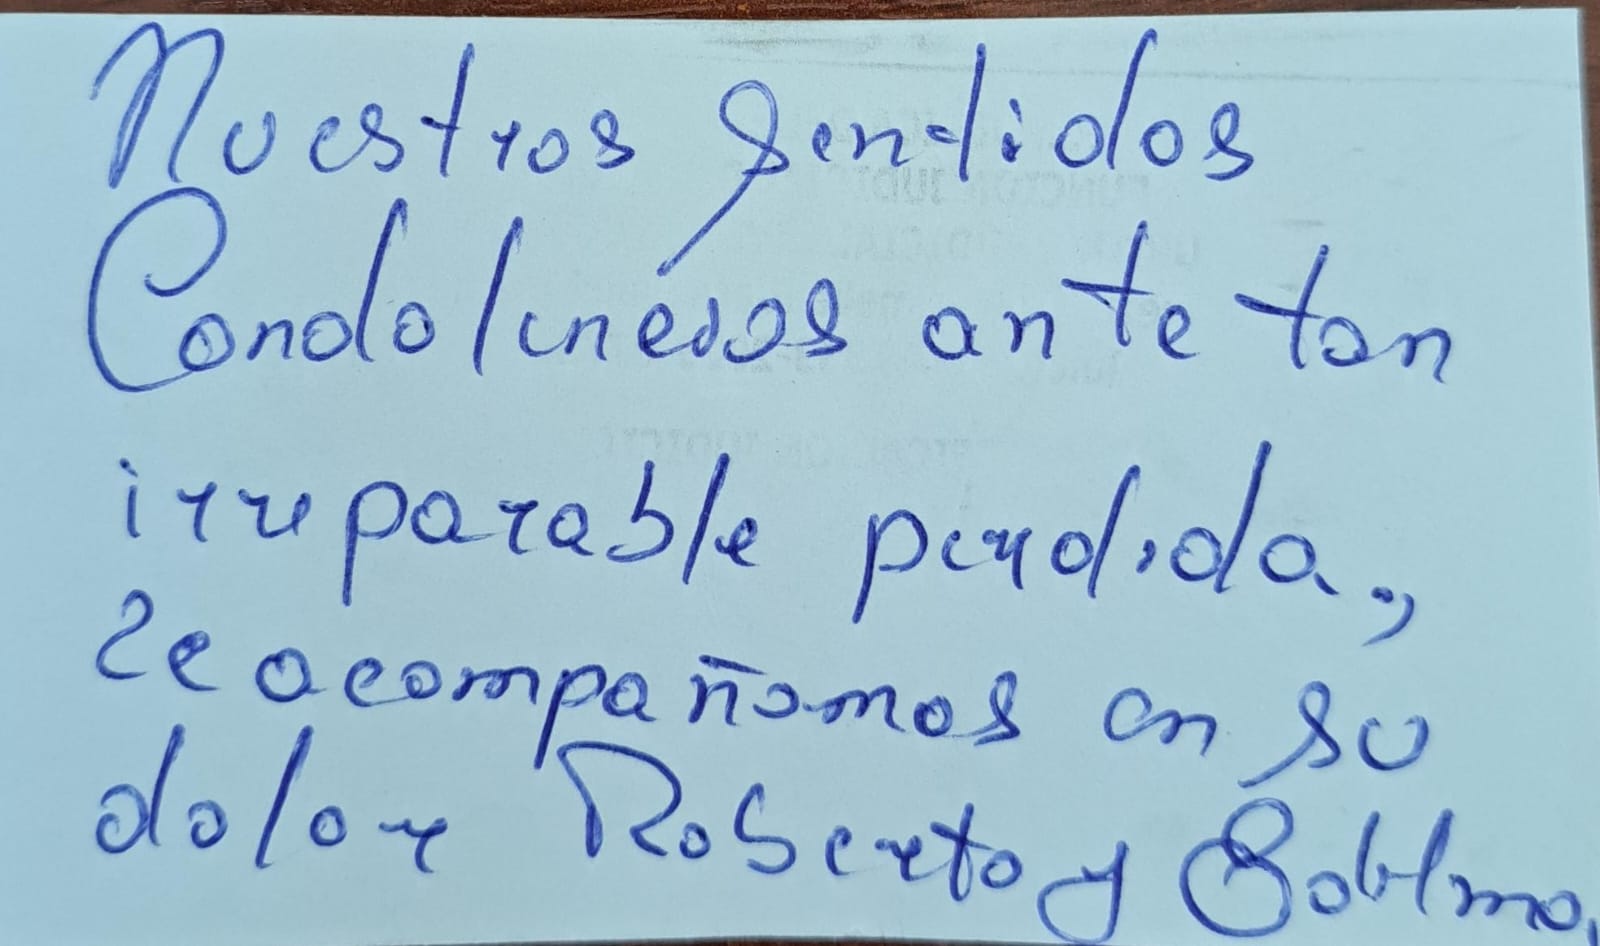 Nuestros sentidos
Condolencias ante tan
irreparable perdida.,
Le acompañamos en su
dolor Roberto y